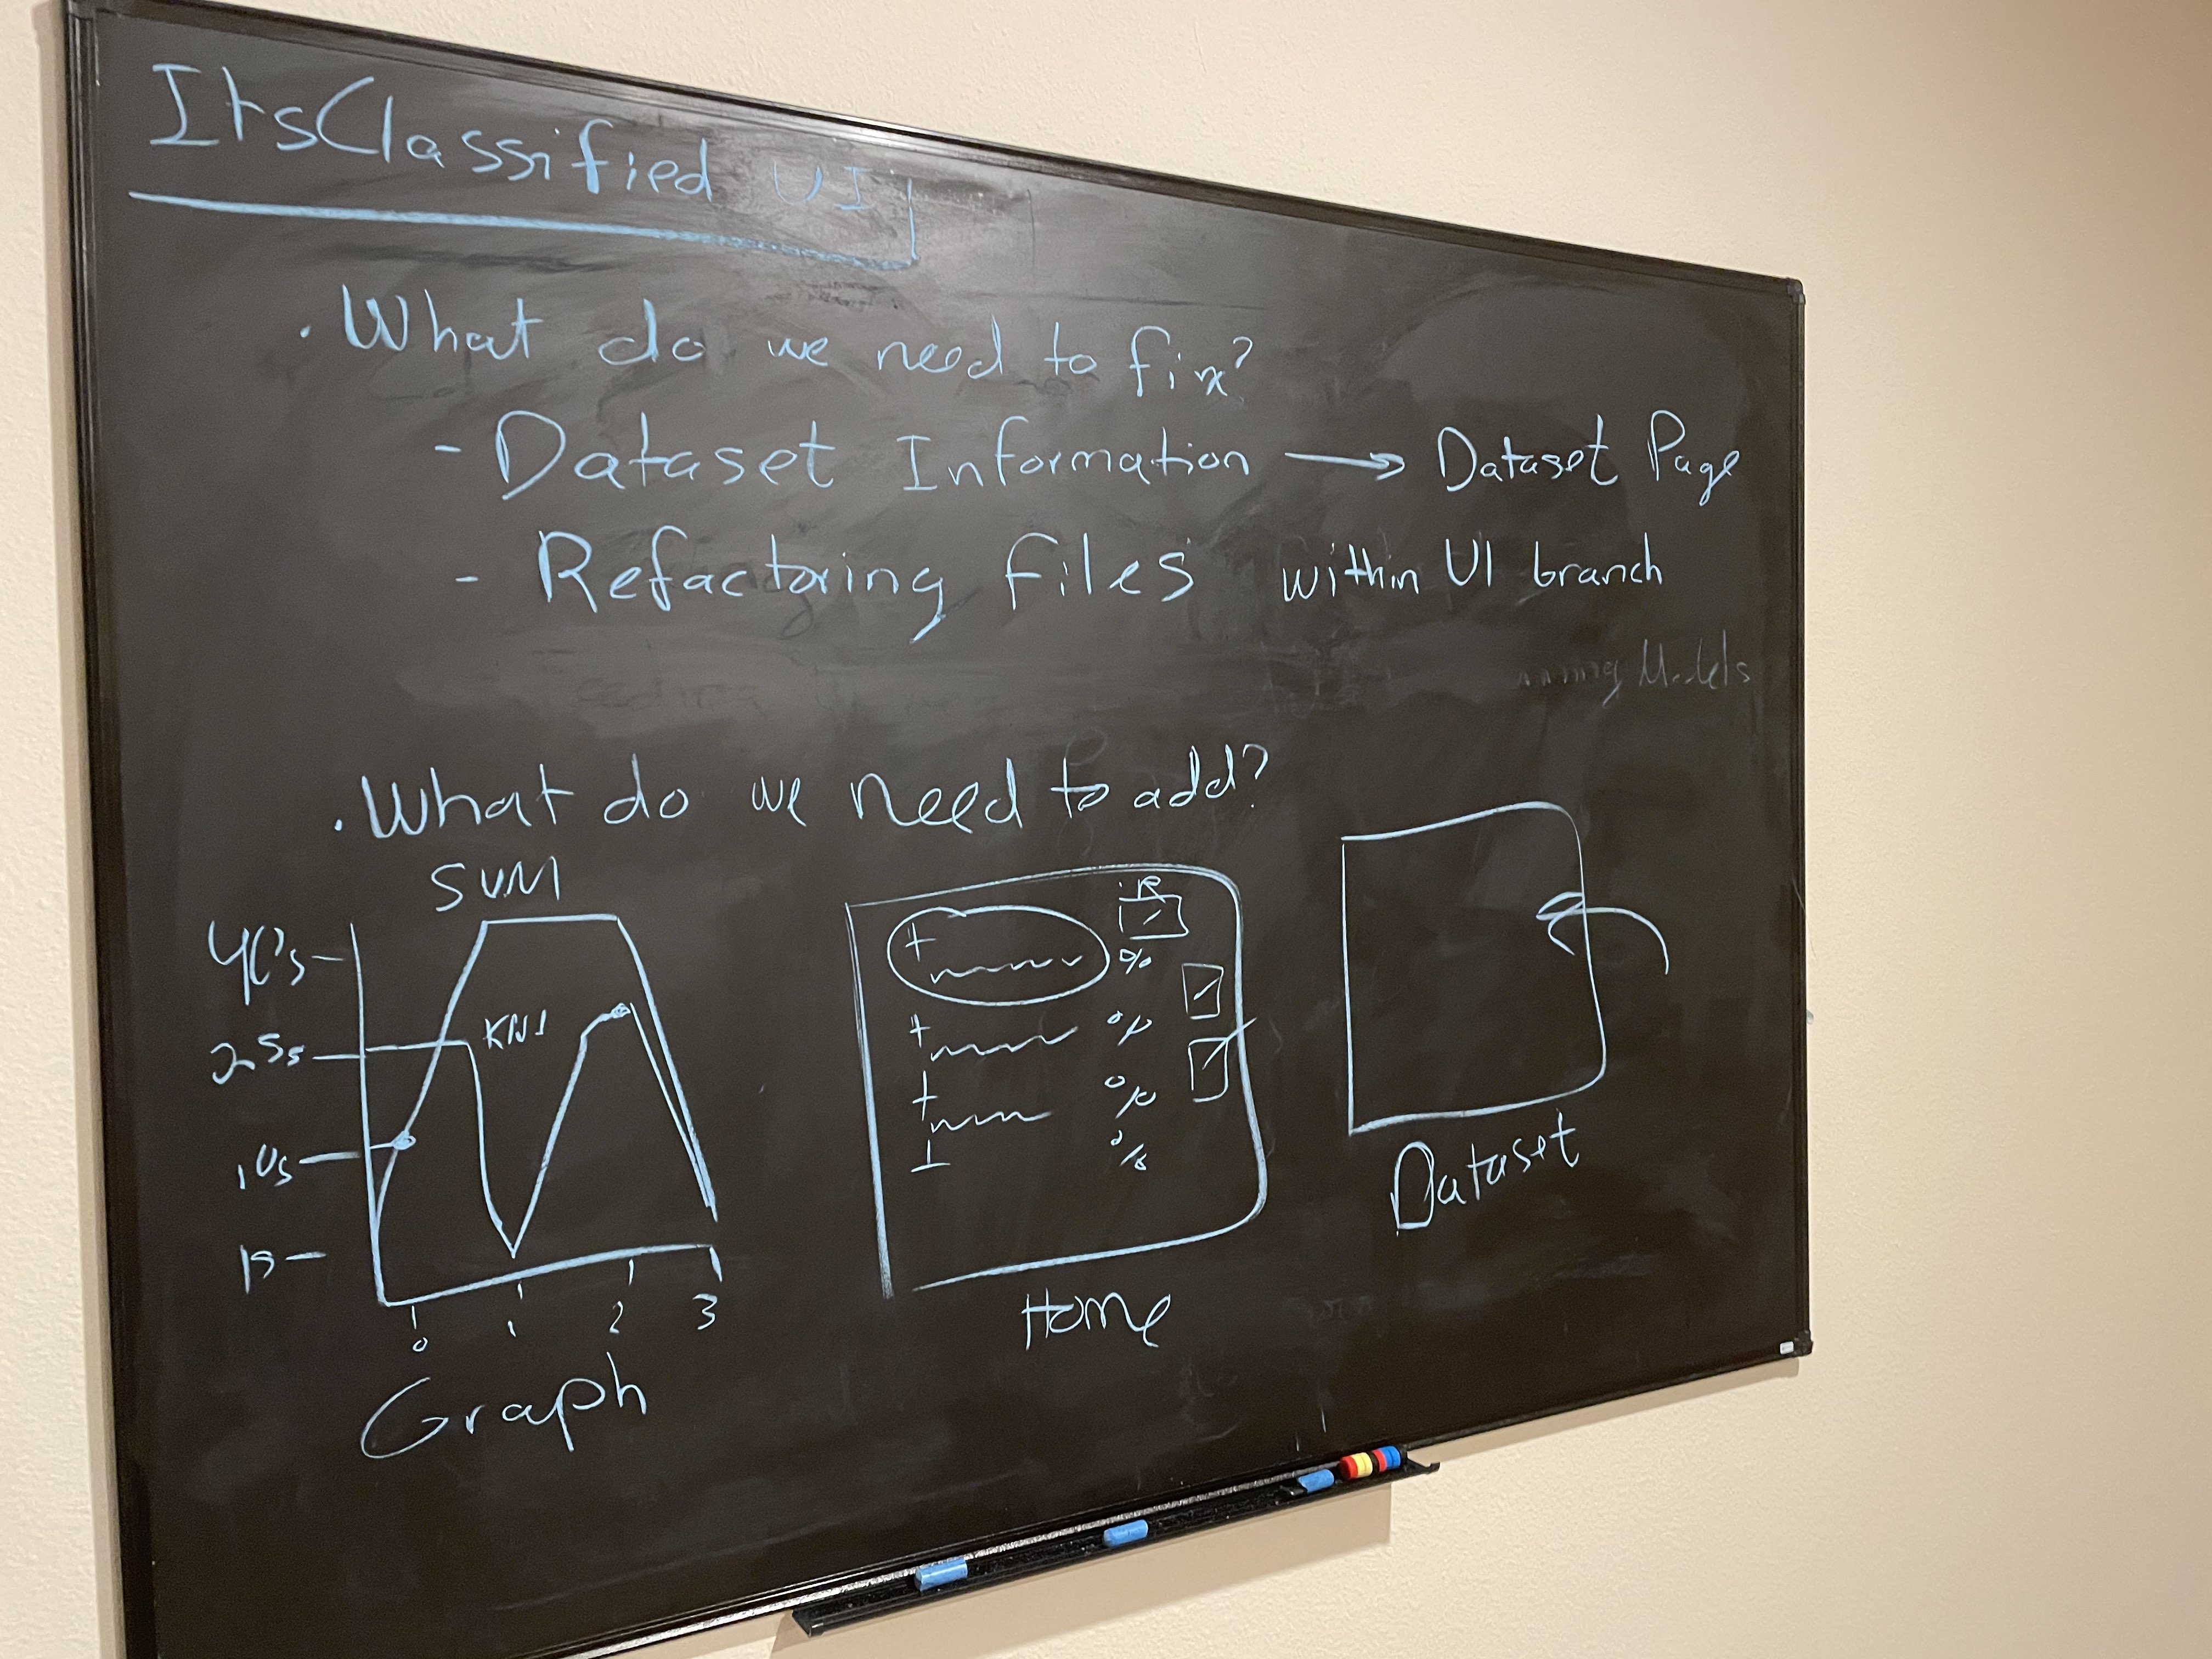 ItsClassified UI
· What do we need to fix?
- Dataset Information → Dataset Page
- Refactoring files within UI branch
Models
· What do we need to add?
SVM
40s
KNN
25s
10s
1s
0 1 2 3
Graph
%
%
%
%
Home
Dataset